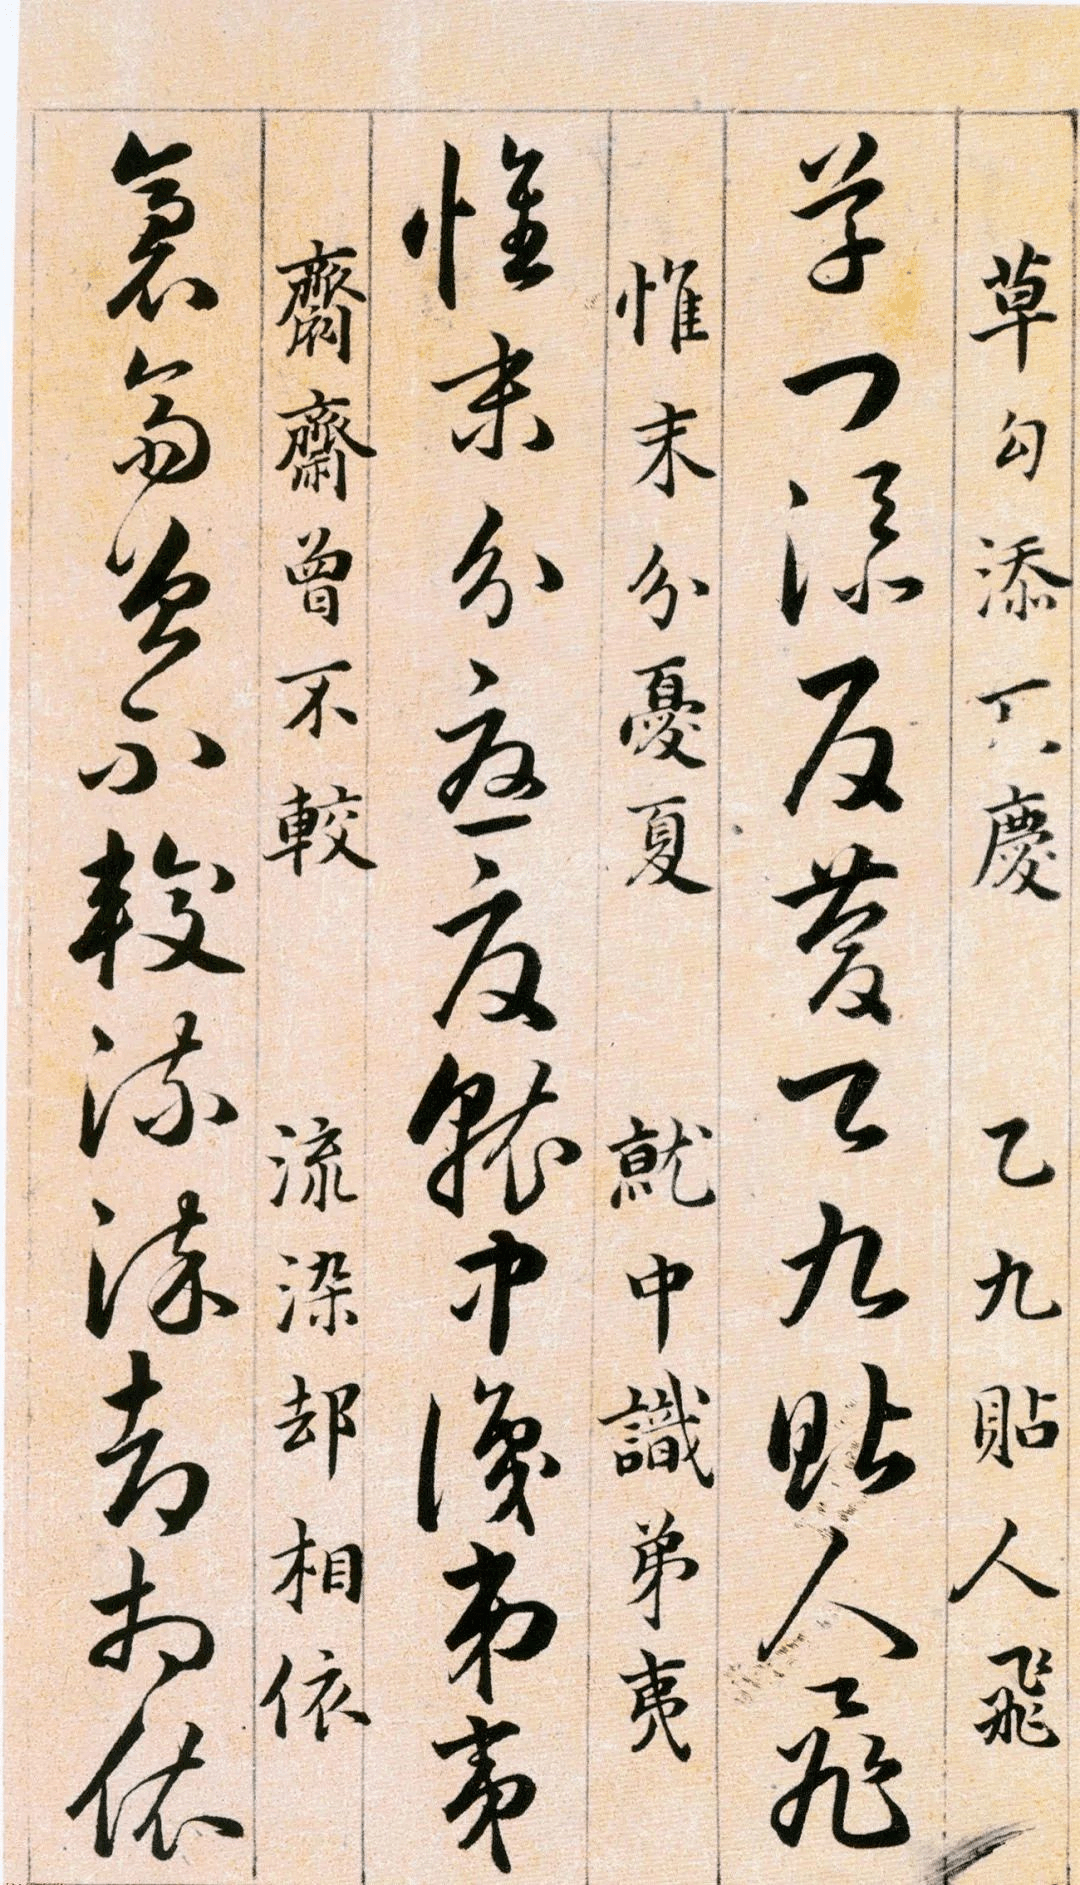 草勾添慶 乙九貼人飛
草勾添反慶乙九貼人飛
惟末分憂夏 就中識弟夷
惟末分憂夏就中識弟夷
齋曾不較 流染却相依
齋曾不較流染却相依